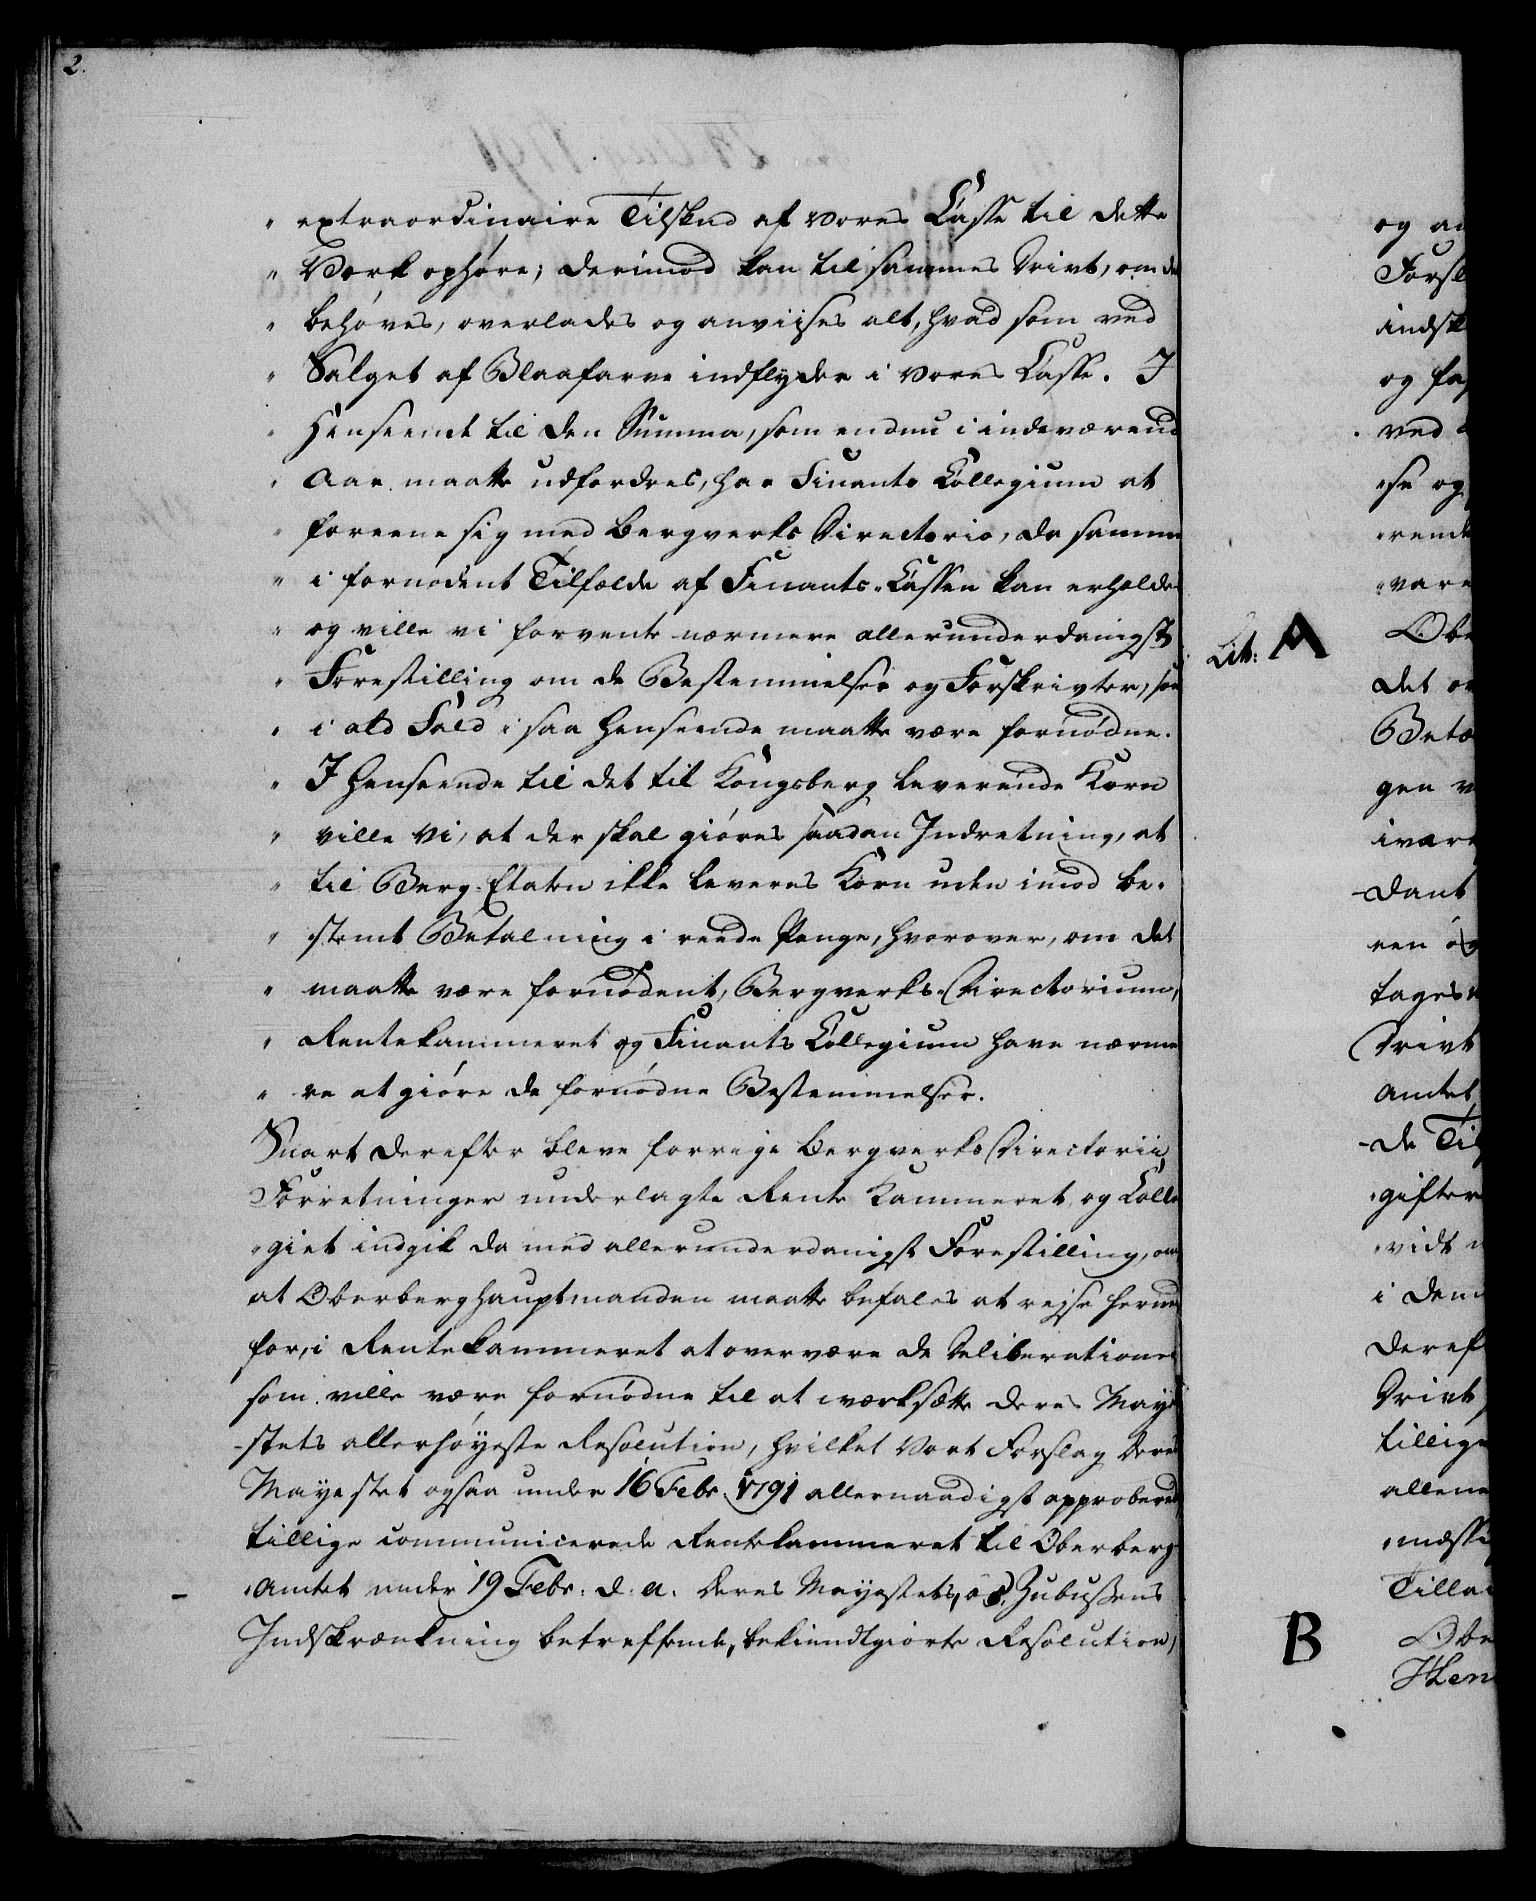 2.
" extraordinaire Tilskud af vores Casse til dette
" Værk ophøre; derimod kan til sammes Drivt, om de
" behøves, overlades og anviises alt, hvad som ved
" Salget af Blaafarve indflyder i vores Casse. I
" Henseende til den Summa, som endnu i indeværend
" Aar maatte udfordres, har Finants Collegium at
" foreene sig med Bergverks Directorio, da samme
" i fornødent Tilfælde af Finants-Cassen kan erholde
" og ville vi forvente nærmere allerunderdanigst
" Forestilling om de Bestemmelser og Forskrivter, som
" i ald Fald i saa Henseende maatte være fornødne.
" I Henseende til det til Kongsberg leverende Korn
" ville vi, at der skal giøres saadan Indretning, at
" til Berg-Etaten ikke leveres Korn uden imod be-
" stemt Betalning i reede Penge, hvorover, om det
" maatte være fornødent, Bergverks-Directorium,
" Rentekammeret og Finants Collegium have nærme
" re at giøre de fornødne Bestemmelser.
Snart derefter bleve forrige Bergverks Directorii
Forretninger underlagte Rente Kammeret, og Colle
-giet indgik da med allerunderdanigst Forestilling, om
at Oberberghauptmanden maatte befales at rejse herned
for, i Rentekammeret at overvære de Deliberationer
som ville være fornødne til at iværksætte Deres Maye
-stets allerhøyeste Resolution, hvilket Vort Forslag Deres
Mayestet ogsaa under 16 Febr. 1791 allernaadigst approberede
tillige communicerede Rentekammeret til Oberberg
-Amtet under 19 Febr. d. a. Deres Mayestets, Zubussens
Indskrænkning betreffende, bekiendtgiorte Resolution,
Lit: A
B